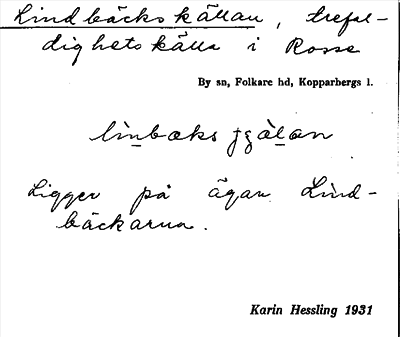 Lindbäckskällan, trefal-
dighetskälla i Rosse
By sn, Folkare hd, Kopparbergs l.
lìnbæks
Ligger på ägan Lind-
bäckarna.
Karin Hessling 1931